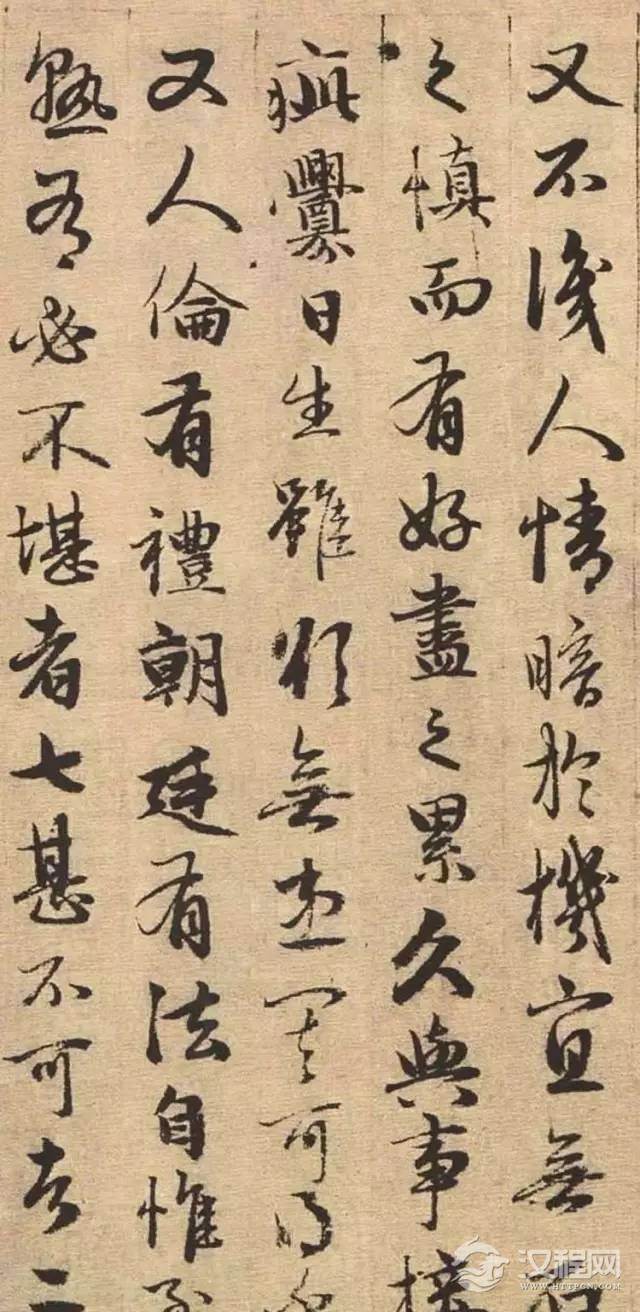 又不識人情暗於機宜無
之慎而有好盡之累久與事接
疵釁日生雖欲無患其可得乎
又人倫有禮朝廷有法自惟至
熟有必不堪者七甚不可者二
汉程网
WWW.HTTPCN.COM